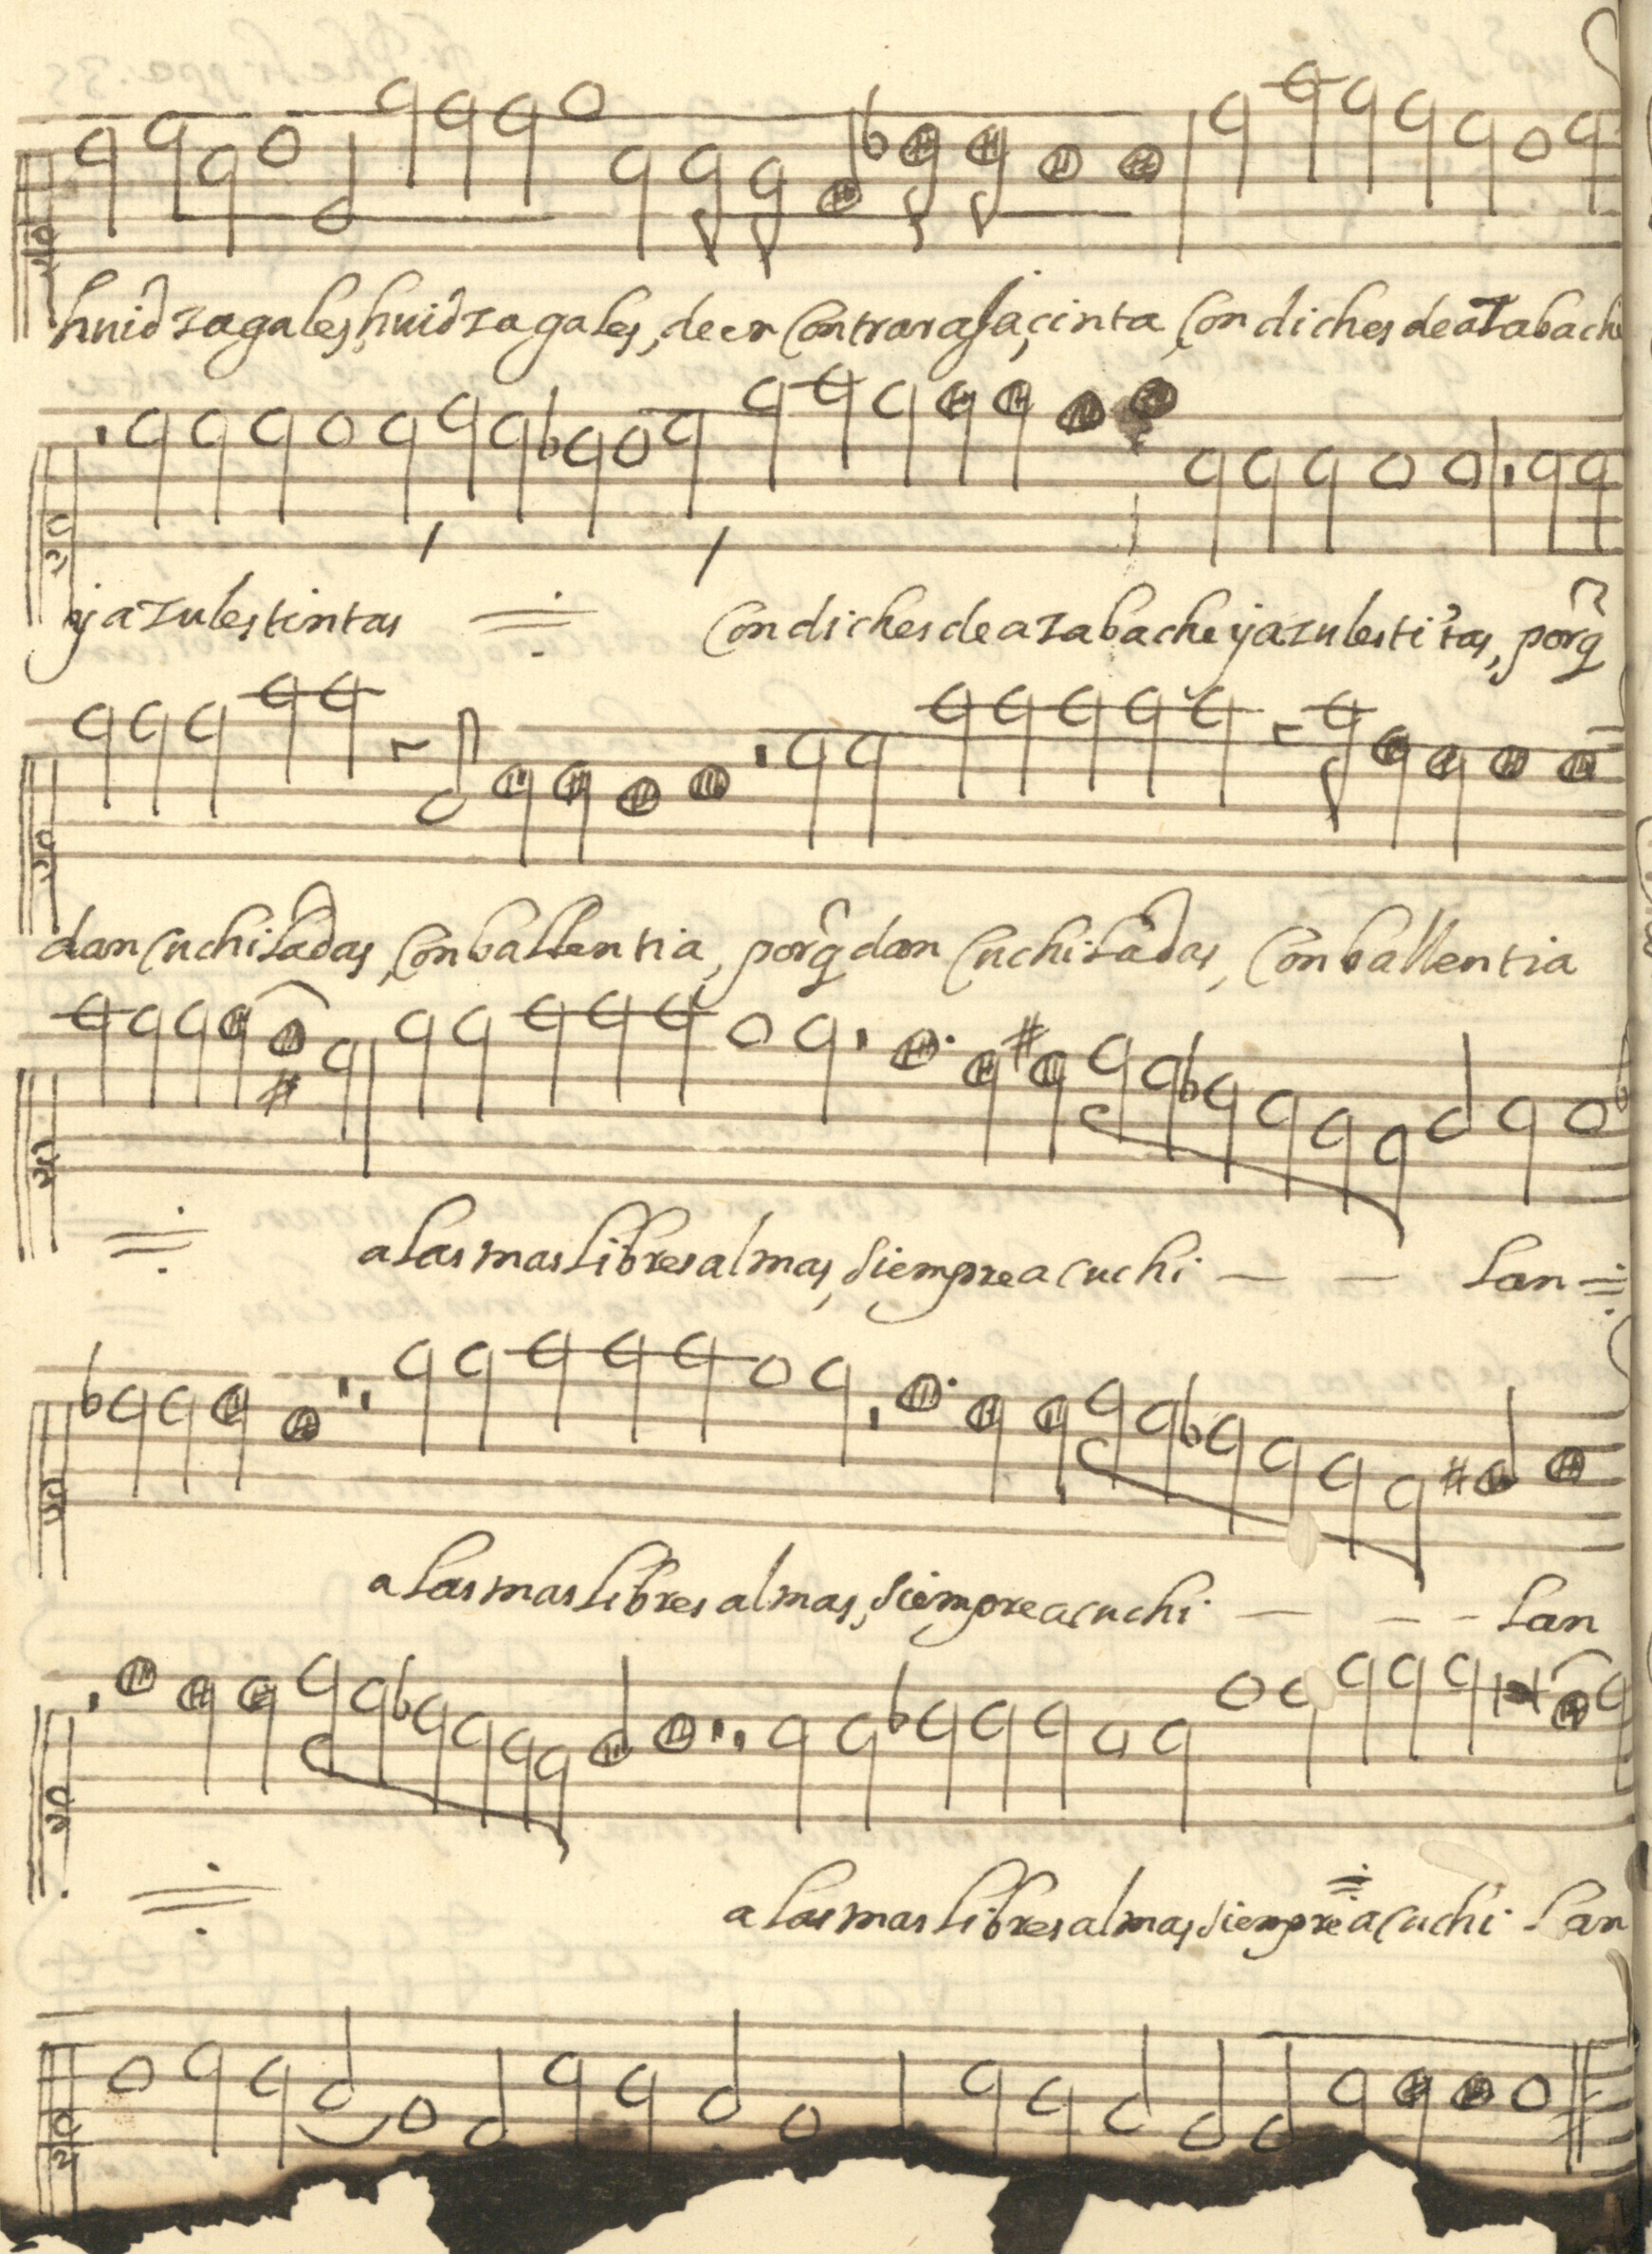 huid zagales, huid zagales, de en contrar a Jaçinta, Con diches de azabache
y azules tintas Con diches de azabache y azules ti~tas, porq̃
dan cuchiladas, Con ballentia, porq̃ dan cuchiladas, Con ballentia
a las mas libres almas, siempre acuchi - - lan
a las mas libres almas, siempre acuchi - - - lan
a las mas libres almas, siempre acuchi lan